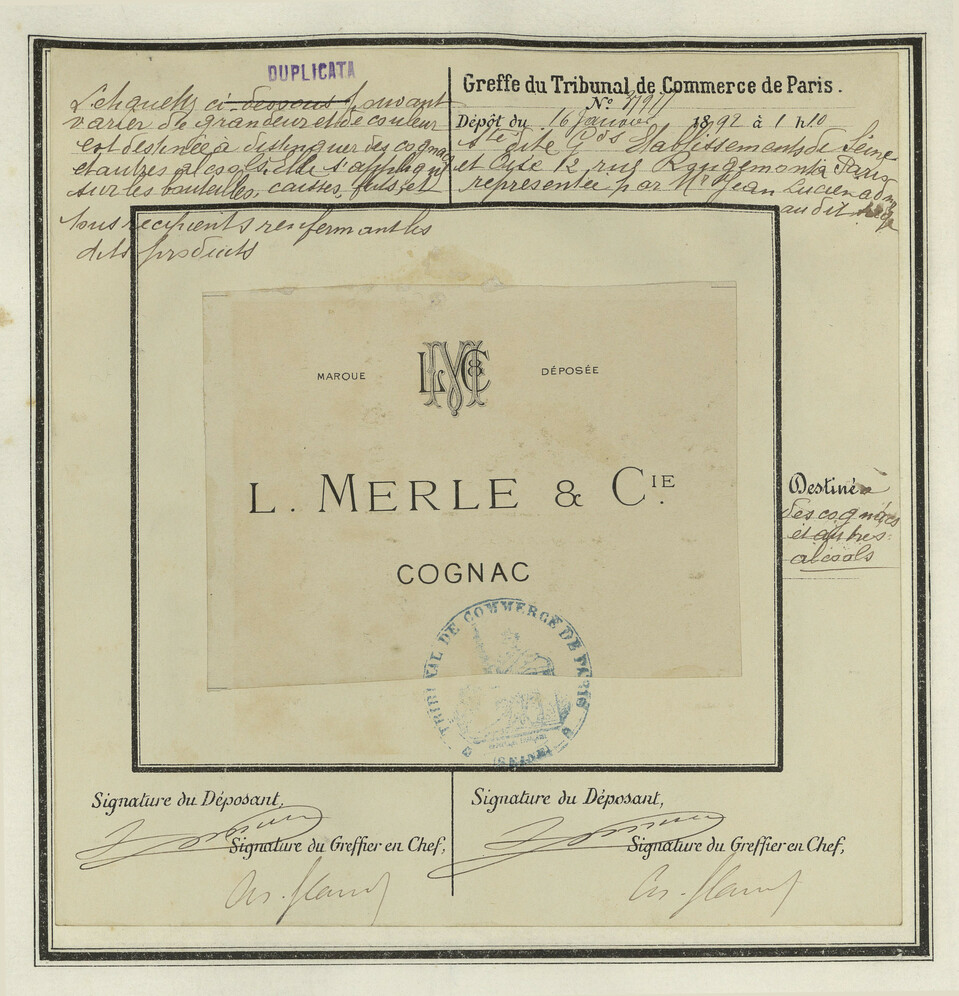 DUPLICATA
L'étiquette ci-dessous pouvant
varier de grandeur et de couleur
est destinée à distinguer des cognacs
et autres alcools. Elle s'applique
sur les bouteilles, caisses, fûts et
tous récipients renfermant les
dits produits
Greffe du Tribunal de Commerce de Paris.
Nº
Dépôt du 16 Janvier 1892 à 1 h 10
Sté dite Gds Etablissements de Seine
et Oise 12 rue Rougemont à Paris
représentée par Mr Jean Lucien adm
au dit siège
MARQUE LM&C DÉPOSÉE
L. MERLE & CIE.
COGNAC
Destiné à
des cognacs
et autres
alcools
TRIBUNAL DE COMMERCE DE PARIS
(SEINE)
Signature du Déposant,
Signature du Greffier en Chef,
Signature du Déposant,
Signature du Greffier en Chef,